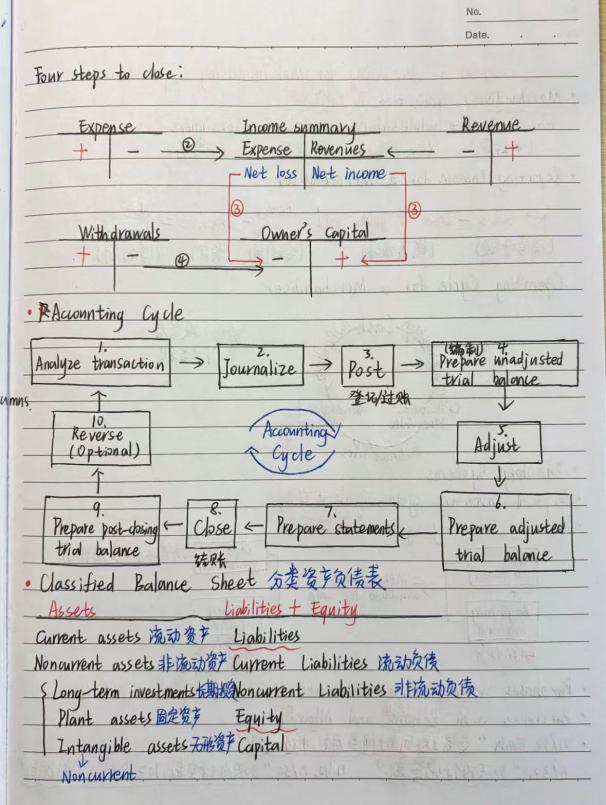 No.
Date.
Four steps to close:
Expense Income summary Revenue
+ − ② Expense Revenues − +
Net loss Net income
③ ③
Withdrawals Owner's Capital
+ − ④ − +
• Accounting Cycle
1. Analyze transaction
2. Journalize
3. Post
登记/过账
(编制) 4. Prepare unadjusted
trial balance
umns.
10. Reverse
(Optional)
Accounting
Cycle
5. Adjust
9. Prepare post-closing
trial balance
8. Close
结账
7. Prepare statements
6. Prepare adjusted
trial balance
• Classified Balance Sheet 分类资产负债表
Assets Liabilities + Equity
Current assets 流动资产 Liabilities
Noncurrent assets 非流动资产 Current Liabilities 流动负债
Long-term investments 长期投资 Noncurrent Liabilities 非流动负债
Plant assets 固定资产 Equity
Intangible assets 无形资产 Capital
Noncurrent